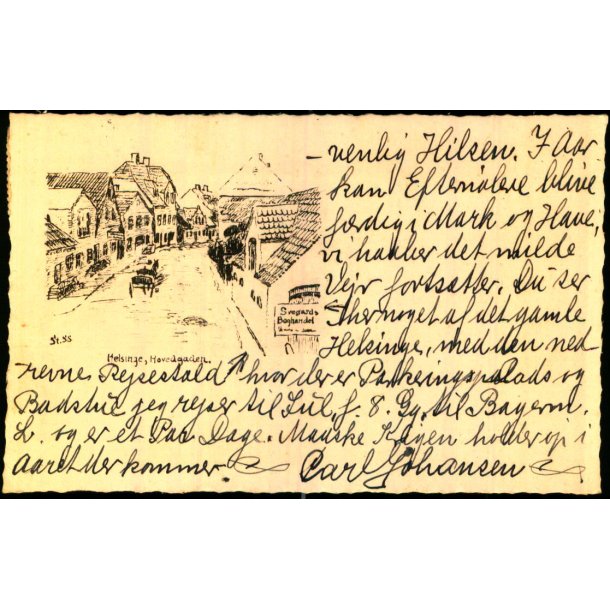 – venlig Hilsen. I Aar
kan Efternølere blive
færdig i Mark og Have,
vi haaber det milde
Vejr fortsætter. Du ser
her noget af det gamle
Helsinge, med den ned
revne Rejsestald hvor der er Parkeringsplads og
Badstue jeg rejser til Jul, f. 8. Gg. til Bayern.
L. og er et Par Dage. Maaske Krigen holder op i
aaret der kommer.
Carl Johansen
St. SS
Helsinge, Hovedgaden.
Svegaards
Boghandel